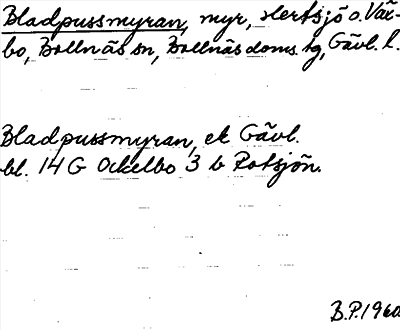 Bladpussmyran, myr, Hertsjö o. Vär-
bo, Bollnäs sn, Bollnäs doms. tg, Gävl. l.
Bladpussmyran, ek Gävl.
bl. 14 G Ockelbo 3 b Rotsjön.
B.P. 1960